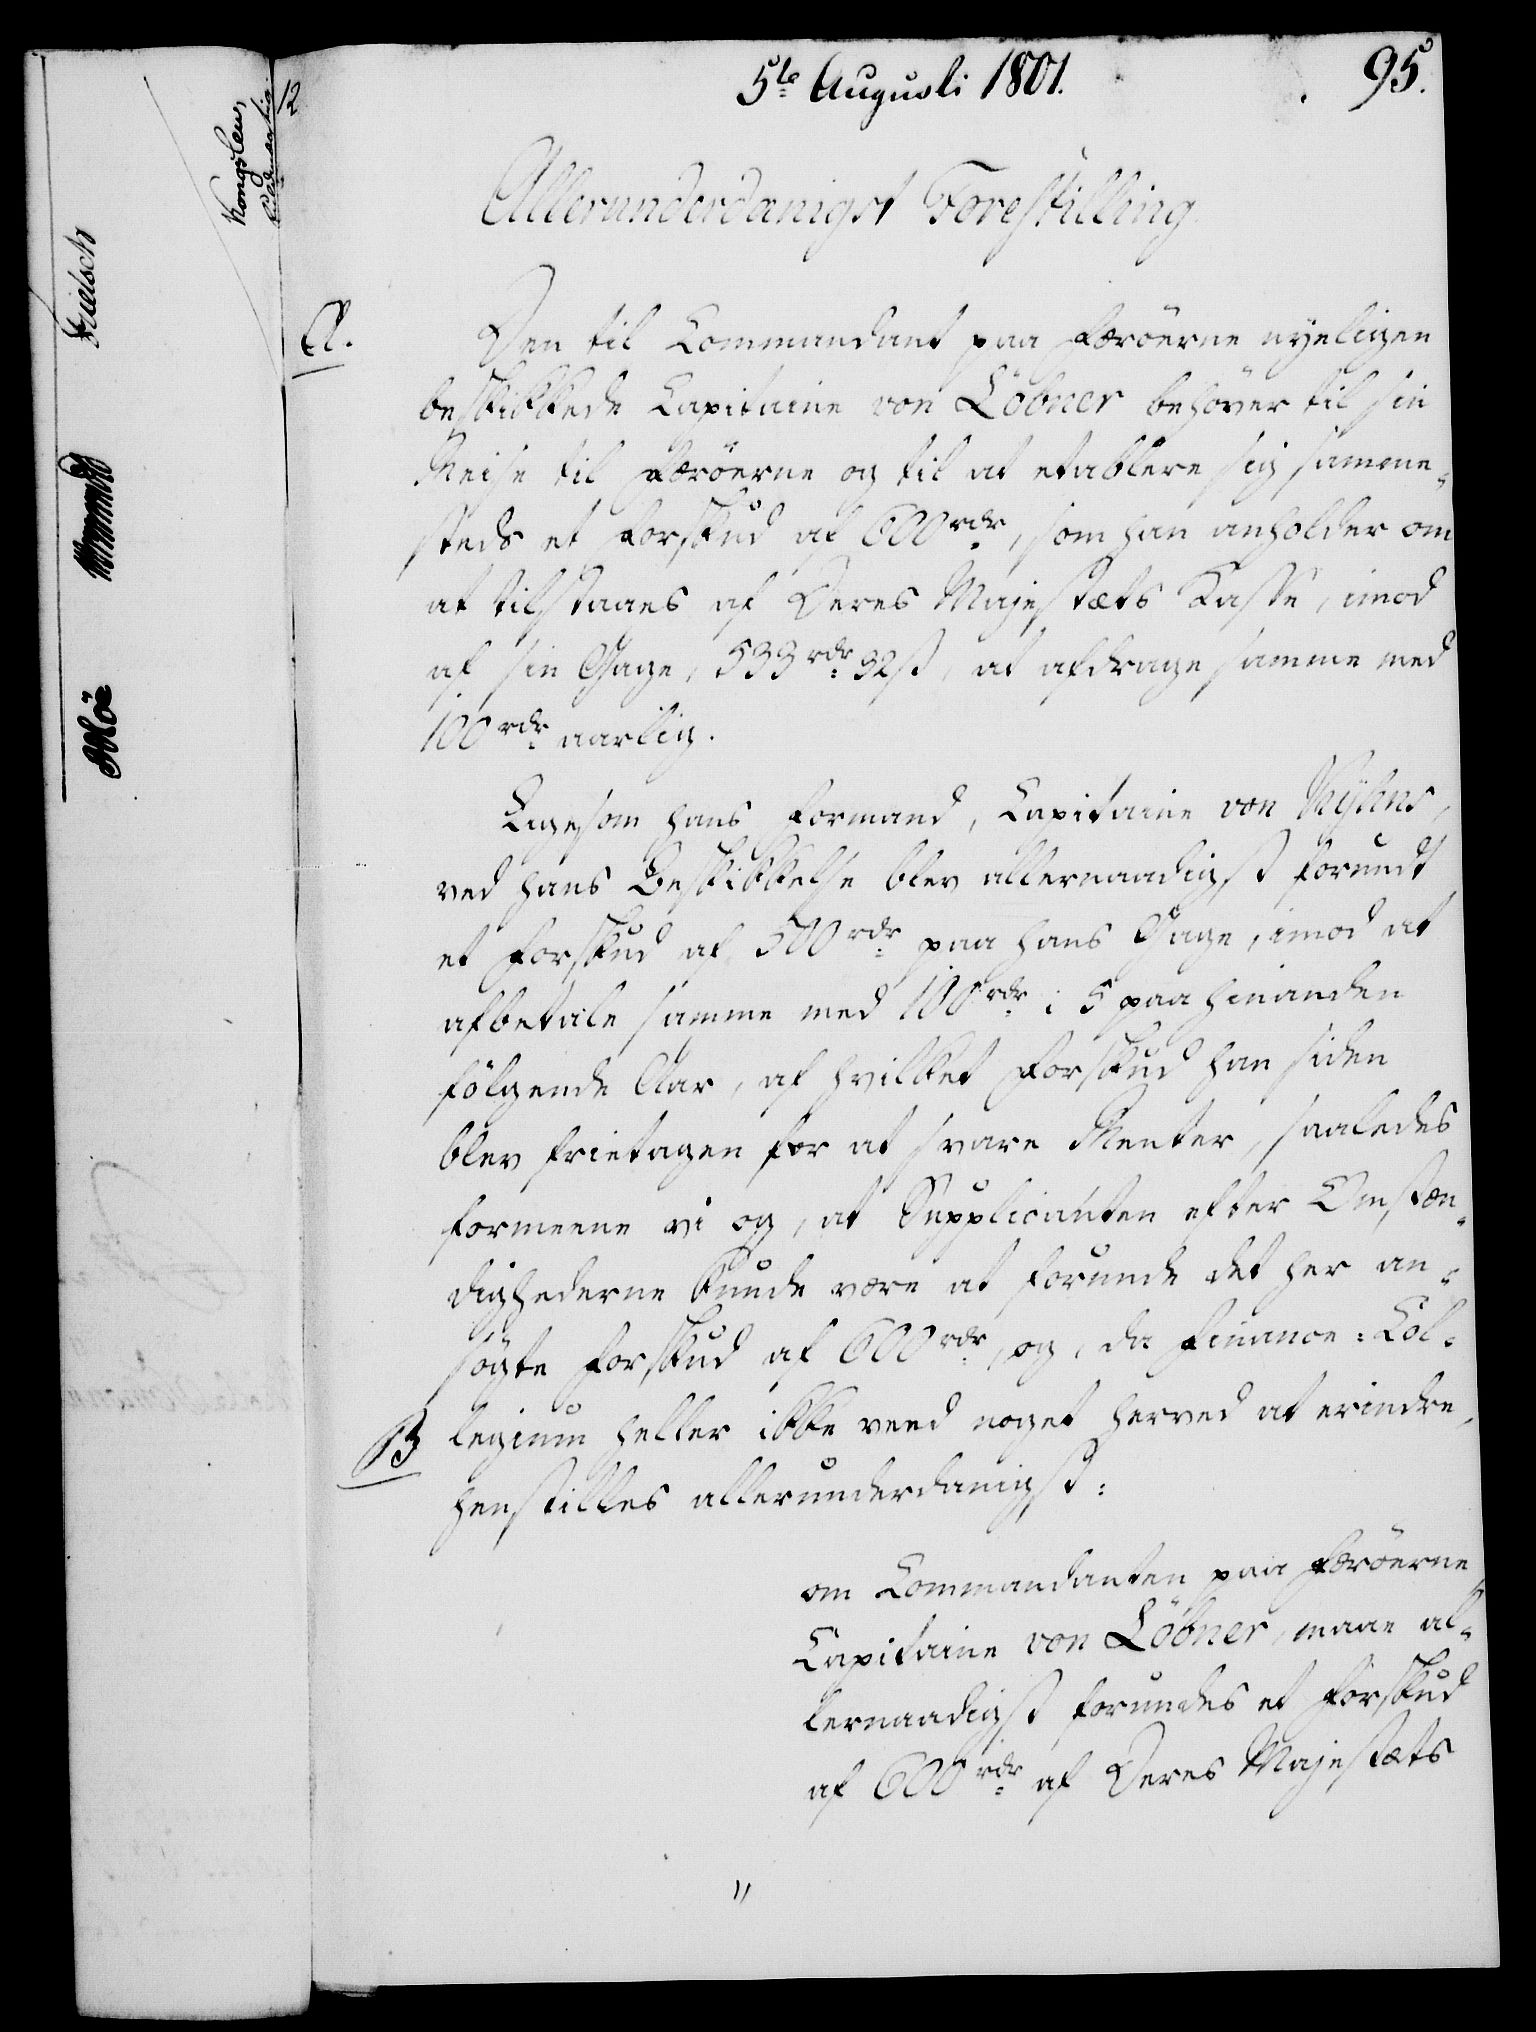 5te Augusti 1801.
95.
Allerunderdanigst Forestilling.
A.
Den til Commandant paa Færöerne nyeligen
beskikkede Capitaine von Löbner behöver til sin
Reise til Færöerne og til at etablere sig samme-
steds et Forskud af 600 rdr, som han anholder om
at tilstaaes af Deres Majestæts Kasse, imod
af sin Gage, 533 rdr 32 ß, at afdrage samme med
100 rdr aarlig.
Ligesom hans Formand, Capitaine von
ved hans Beskikkelse blev allernaadigst forundt
et Forskud af 500 rdr paa hans Gage, imod at
afbetale samme med 100 rdr i 5 paa hinanden
fölgende Aar, af hvilket Forskud han siden
blev frietagen for at svare Renter, saaledes
formeene vi og, at Supplicanten efter Omstæn-
dighederne kunde være at forunde det her an-
sögte Forskud af 600 rdr, og, da Finance-Col-
B
legium heller ikke veed noget herved at erindre,
henstilles allerunderdanigst:
om Commandanten paa Færöerne,
Capitaine von Löbner, maae al-
lernaadigst forundes et Forskud
af 600 rdr af Deres Majestæts
12